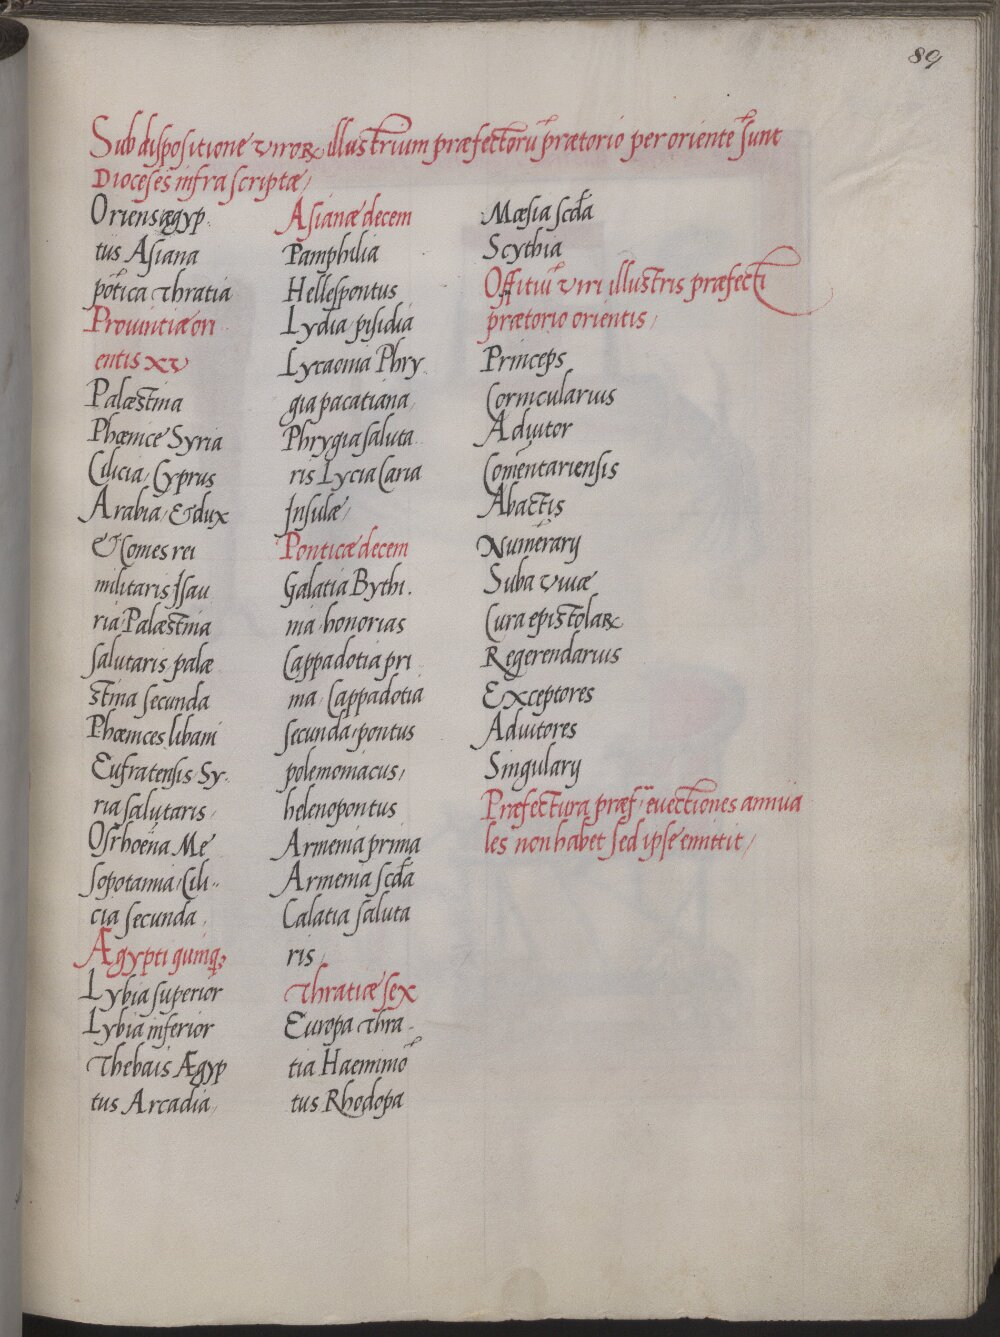 89
Sub dispositione viroꝝ illustrium præfectorū prætorio per oriente sunt
Dioceses infra scriptæ/
Oriens ægyp
tus Asiana
pōtica Thratia
Prouintiæ ori
entis XV
Palæstina
Phœnice Syria
Cilicia, Cyprus
Arabia, & dux
& Comes rei
militaris Isau
ria Palæstina
salutaris palæ
stina secunda
Phœnices libani
Eufratensis Sy.
ria salutaris,
Osrhoëna Me
sopotamia, Cili..
cia secunda,
Ægypti quinqꝫ
Lybia superior
Lybia inferior
Thebais Ægyp
tus Arcadia,
Asianæ decem
Pamphilia
Hellespontus
Lydia, pisidia
Lycaonia Phry
gia pacatiana,
Phrygia saluta
ris Lycia Caria
Insulæ,
Ponticæ decem
Galatia Bythi.
nia honorias
Cappadotia pri
ma, Cappadotia
secunda, pontus
polemoniacus,
helenopontus
Armenia prima
Armenia scda
Calatia saluta
ris,
Thratiæ sex
Europa Thra.
tia Haemimō
tus Rhodopa
Mœsia scda
Scythia
Offitiū viri illustris præfecti
prætorio orientis,
Princeps
Cornicularius
Adiutor
Comentariensis
Abactis
Numerarij
Suba viuæ
Cura epistolaꝝ
Regerendarius
Exceptores
Adiutores
Singularij
Præfectura præf. euectiones annua
les non habet sed ipse emittit,